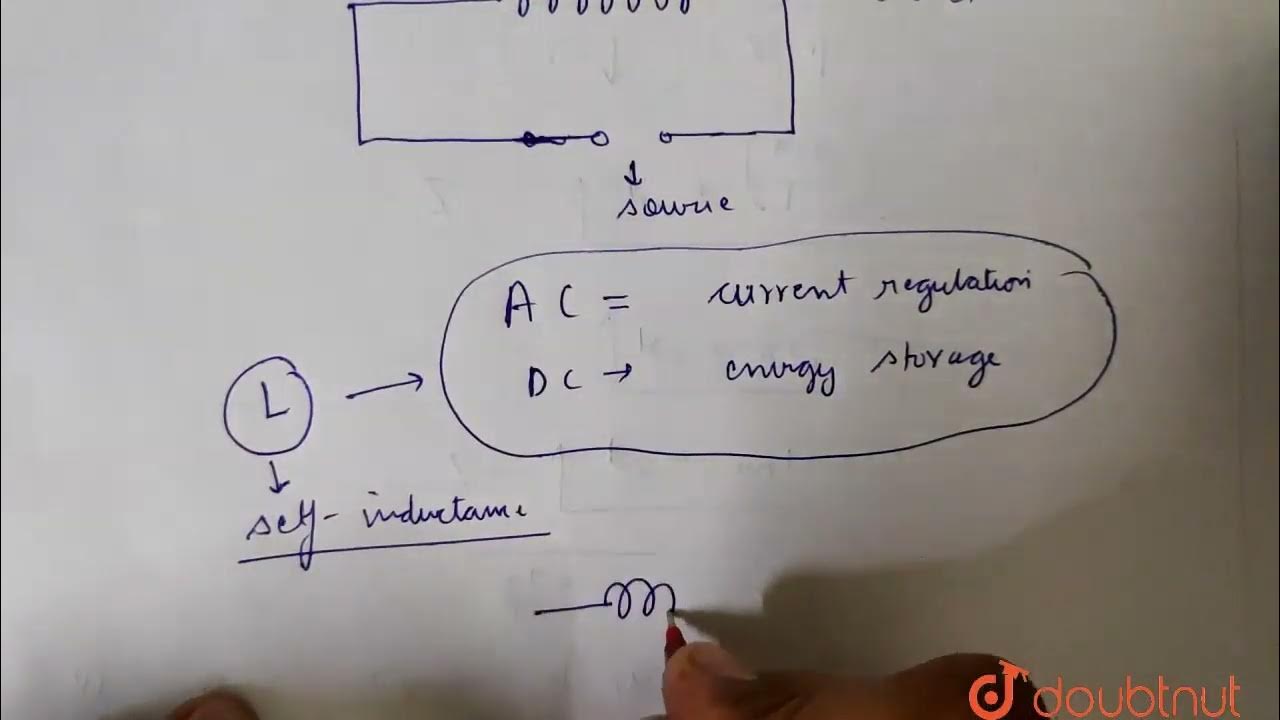 source
AC = current regulation
DC → energy storage
L
self-inductance
doubtnut